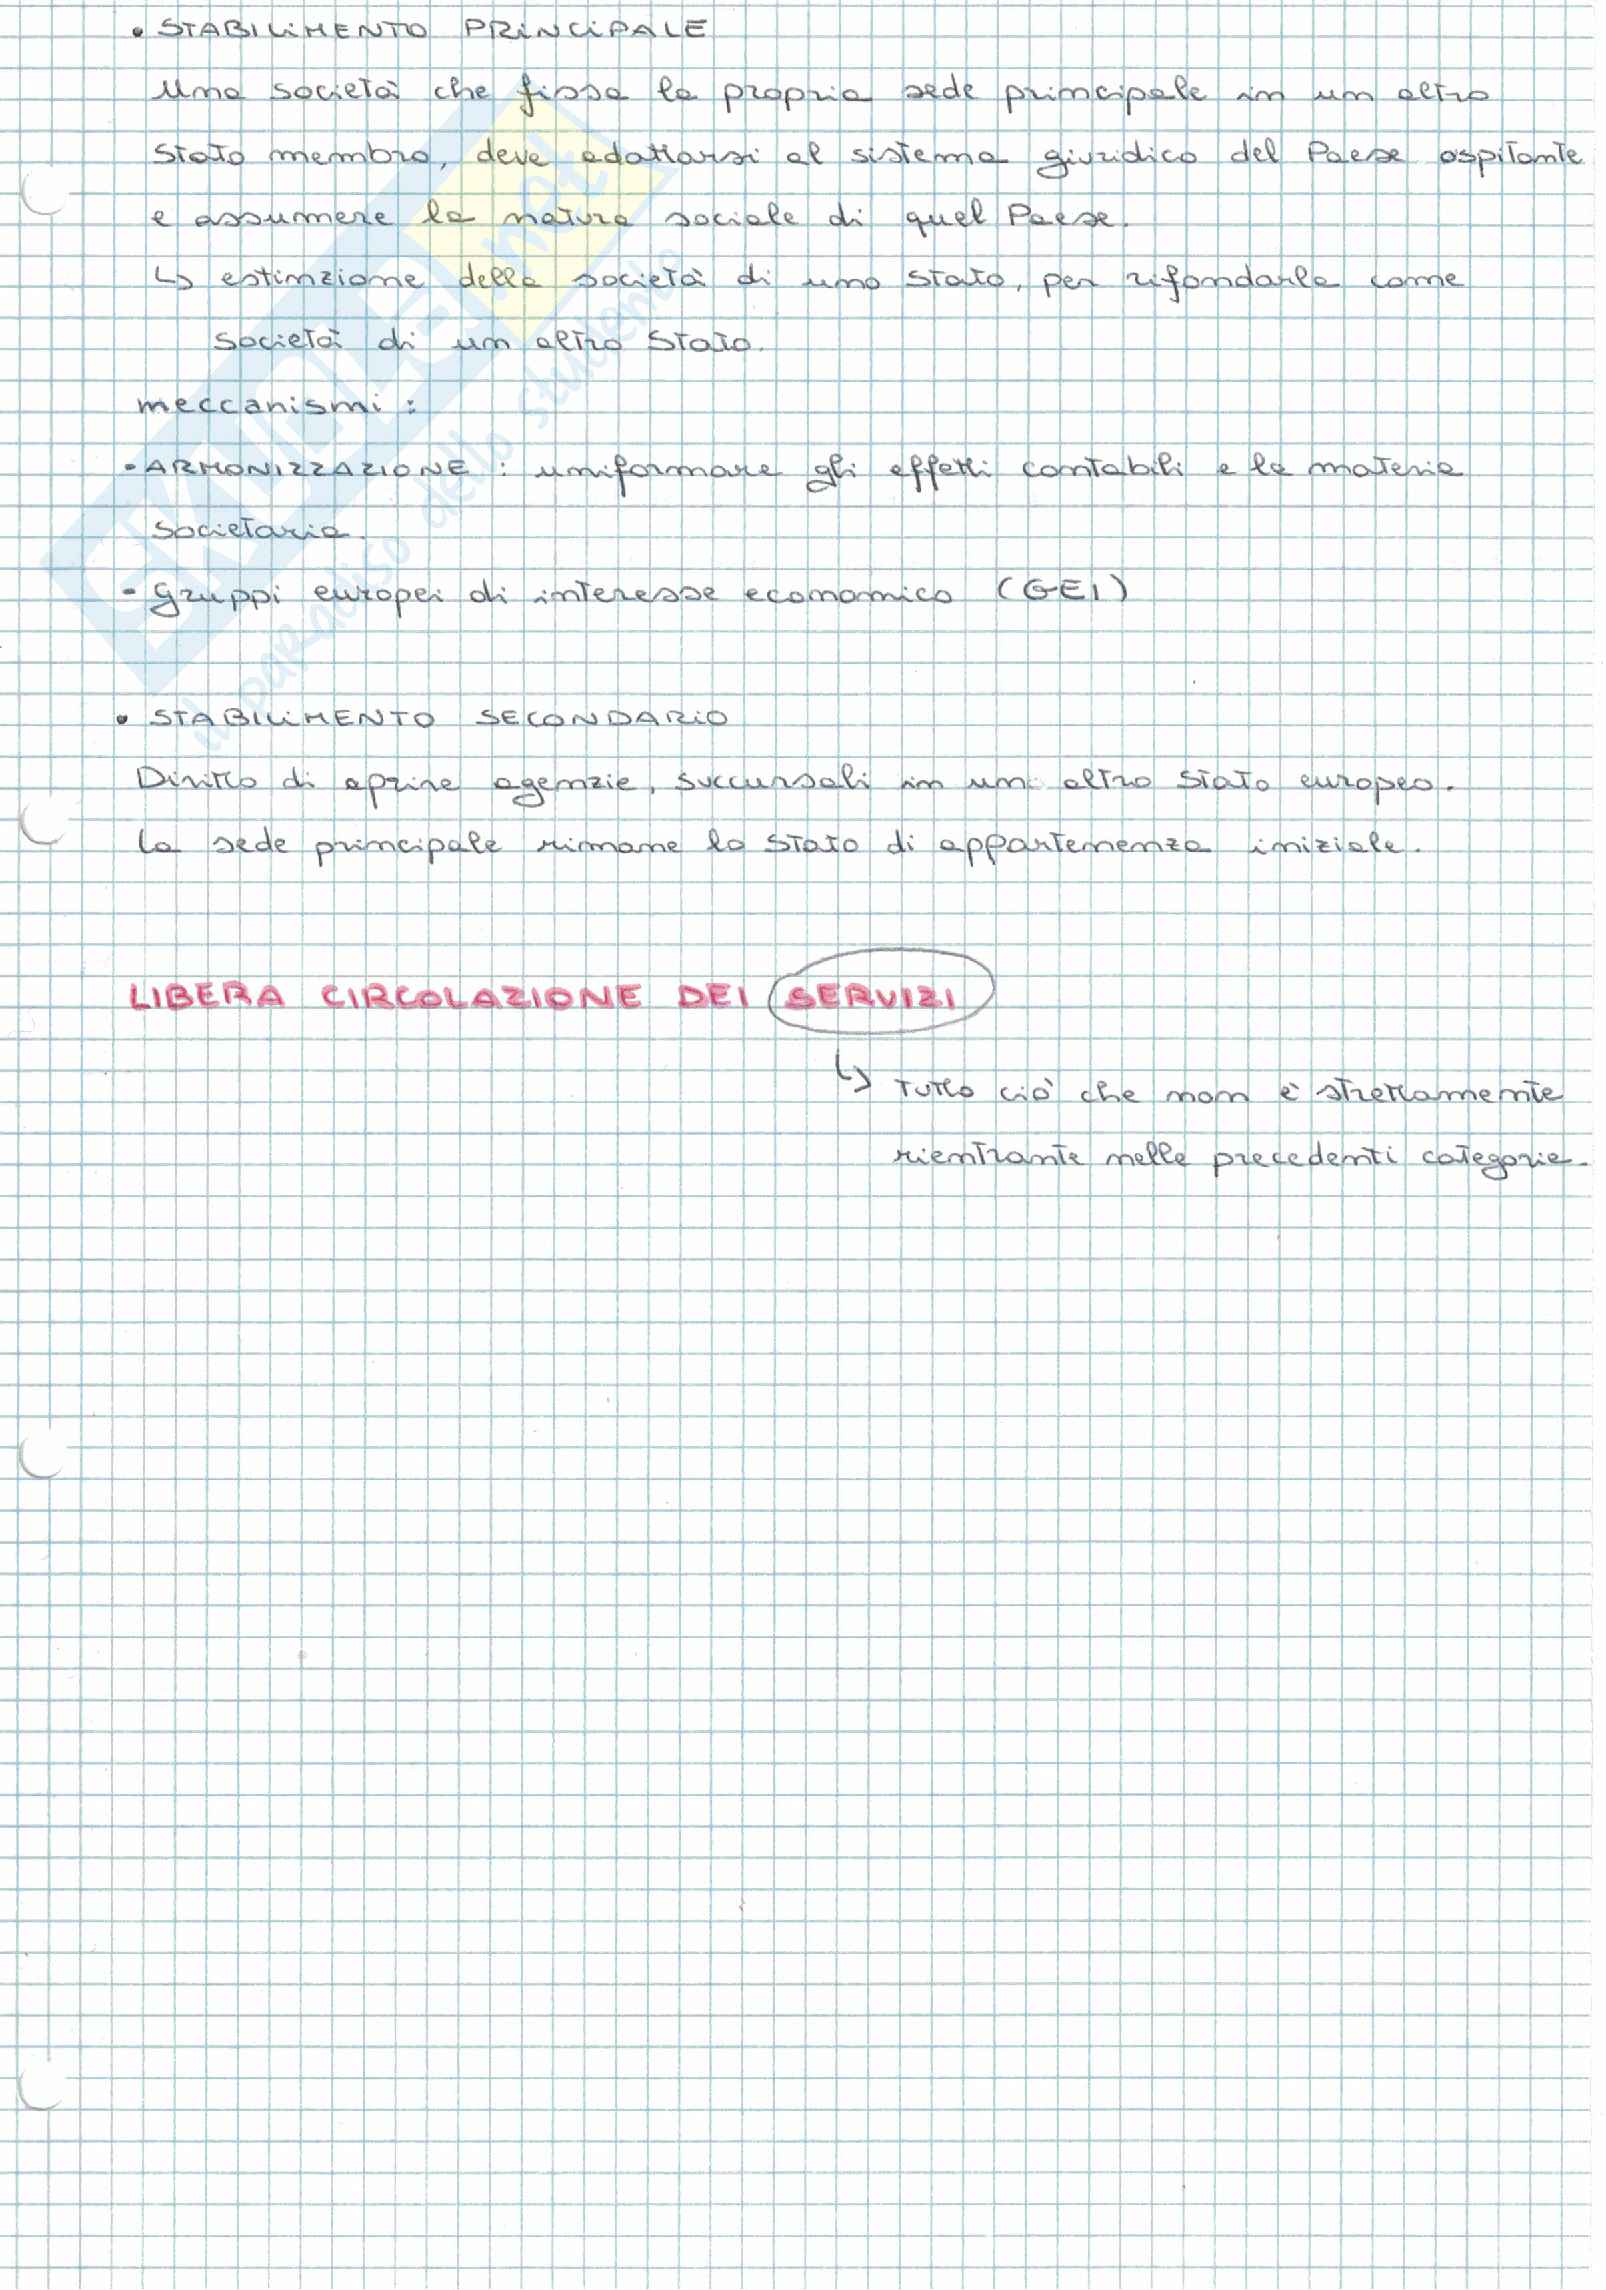 • STABILIMENTO PRINCIPALE
Una società che fissa la propria sede principale in un altro
Stato membro, deve adattarsi al sistema giuridico del Paese ospitante
e assumere la natura sociale di quel Paese.
↳ estinzione della società di uno Stato, per rifondarla come
società di un altro Stato.
meccanismi :
- ARMONIZZAZIONE : uniformare gli effetti contabili e la materia
societaria.
- gruppi europei di interesse economico (GEI)
• STABILIMENTO SECONDARIO
Diritto di aprire agenzie, succursali in un altro Stato europeo.
La sede principale rimane lo Stato di appartenenza iniziale.
LIBERA CIRCOLAZIONE DEI SERVIZI
↳ Tutto ciò che non è strettamente
rientrante nelle precedenti categorie.
SKUOLA.net
il paradiso dello studente